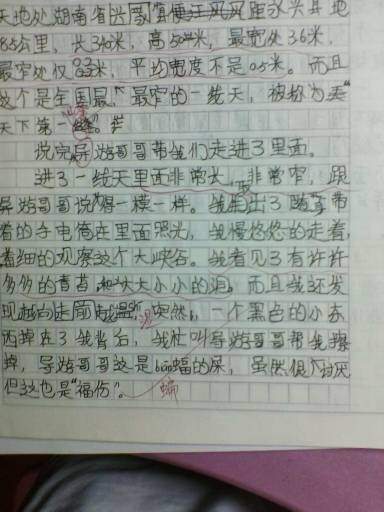 天地处湖南省 距永兴县地
85公里，长340米，高50米，最宽处3.6米，
最窄处仅0.33米，平均宽度不足0.5米。而且
这个是全国最长最窄的一线天，被称为
天下第一
说完导游哥哥带我们走进了里面。
进了一线天里面非常长，非常窄，跟
导游哥哥说得一模一样。我拿出了随手带
着的手电筒在里面照光，我慢悠悠的走着，
着细的观察这个大峡谷。我看见了有许许
多多的青苔，和大大小小的洞，而且我还发
现越向走 越湿 突然，一个黑色的小东
西掉在了我背后，我忙叫导游哥哥帮我擦
掉，导游哥哥这是bian蝠的屎，虽然很讨厌
但这也是“福伤”。
蝙